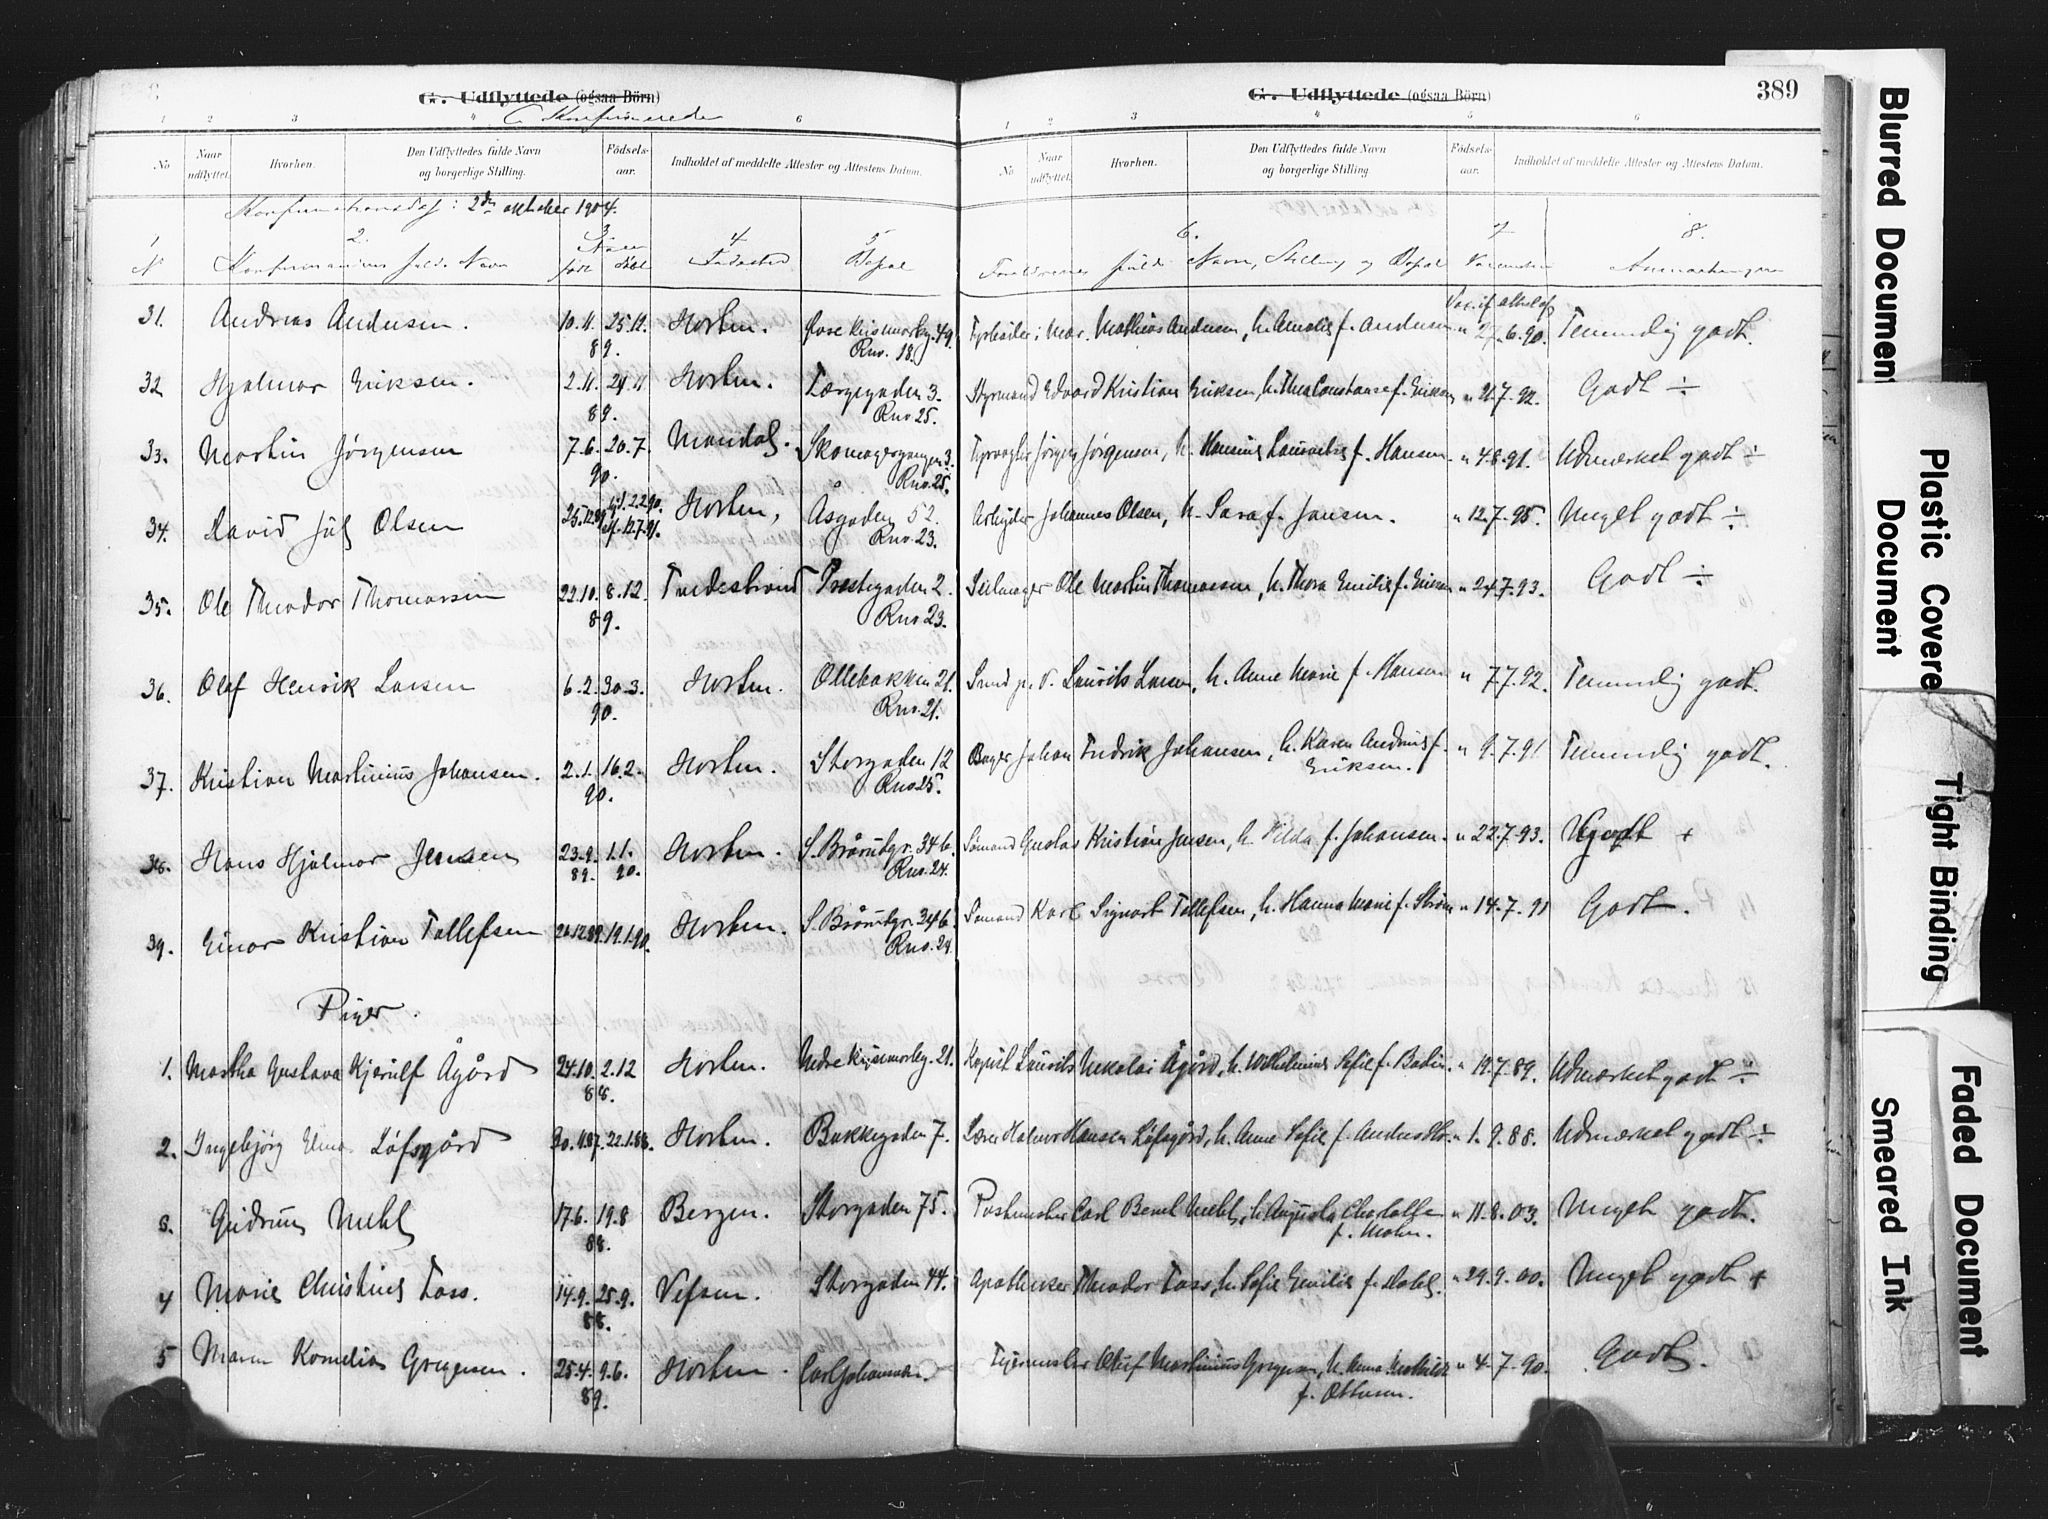 G. Udflyttede (ogsaa Börn)
C. Konfirmerede
1 2 3 4 6
No Naar udflyttet. Hvorhen. Den Udflyttedes fulde Navn og borgerlige Stilling. Födsels-aar. Indholdet af meddelte Attester og Attestens Datum.
Konfirmationsdag: 2den oktober 1904.
1 2. 3. 4 5
N Konfirmandens fulde Navn Naar født døbt Fødested Bopæl
31. Andreas Andersen. 10.11. 25.12. 89. Horten. Øvre Keisemarkv. 49. Rnv. 18.
32 Hjalmar Eriksen. 2.11. 24.11 89. Horten. Færgegaden 3. Rnv 25.
33. Martin Jørgensen 7.6. 20.7. 90. Mandal. Skomagergangen 3. Rnv. 25.
34. David Juhl Olsen 25.12.89 Horten, Åsgaden 52. Rnv. 23.
35. Ole Theodor Thomassen 22.10. 8.12. 89. Tvedestrand Prestegaden 2. Rnv 23.
36. Olaf Henrik Larsen 6.2. 30.3. 90. Horten. Ollebakken 21. Rnv. 21.
37. Kristian Martinius Johansen. 2.1. 16.2. 90. Horten. Storgaden 12 Rnv 25.
38. Hans Hjalmar Jensen 23.9. 89. 1.1. 90. Horten. S. Bråtentgr. 34 b. Rnv. 24.
39. Einar Kristian Tollefsen 26.12.89. 19.1.90. Horten. S. Bråtentgr. 34 b. Rnv. 24.
Piger.
1. Martha Gustava Kjerulf Ågård 24.10. 2.12 88. Horten. Nedre Keisemarkv. 21.
2. Ingebjørg Elma Løfsgård 30.11.87. 22.1.88. Horten. Bakkegaden 7.
3. Gudrun Mehl 17.6. 19.8 88. Bergen. Storgaden 75.
4 Marie Christine Foss. 14.9. 25.9. 88. Vefsen. Storgaden 44.
5 Maren Kornelia Gregersen. 25.4. 9.6. 89. Horten.
G. Udflyttede (ogsaa Börn)
389
1 2 3 4 5 6
No Naar udflyttet. Hvorhen. Den Udflyttedes fulde Navn og borgerlige Stilling. Födsels-aar. Indholdet af meddelte Attester og Attestens Datum.
6. 7 8.
Forældrenes fulde Navn, Stilling og Bopæl Vaccination Anmærkninger
Mathias Andersen, h. Amalie f. Andersen " 27.6.90. Temmelig godt.
Styrmand Edvard Kristian Eriksen, h. Thea Constanse f. Eriksen " 21.7.92. Godt ÷
Fyrvogter Jørgen Jørgensen, h. Hansine f. Hansen. " 4.8.91. Udmærket godt ÷
Arbeider Johannes Olsen, h. Sara f. Jansen. " 12.7.95. Meget godt ÷
Seilmager Ole Martin Thomassen, h. Thora Emilie f. Eriksen " 24.7.93. Godt ÷
Laurits Larsen, h. Anne Marie f. Hansen " 7.7.92. Temmelig godt.
Bager Johan Fredrik Johansen, h. Karen Andrine f. Eriksen. " 9.7.91 Temmelig godt.
Sømand Gustav Kristian Jensen, h. Hilda f. Johansen. " 22.7.93. Godt +
Sømand Karl Sigvart Tollefsen, h. Hanna Marie f. Strøm " 14.7.91 Godt.
Laurits Nikolai Ågård, h. Wilhelmine Sofie f. " 19.7.89. Udmærket godt ÷
Lærer Halvor Hansen Løfsgård, h. Anne Sofie f. " 1.9.88. Udmærket godt ÷
Postmester Carl Bernt Mehl, h. Augusta Charlotte f. Mohn. " 11.8.03. Meget godt.
Apotheker Theodor Foss, h. Sofie Emilie f. Dahl. " 29.9.00. Meget godt +
Oluf Martinius Gregersen, h. Anna Mathilde f. Ottesen. " 4.7.90. Godt.
Blurred Document
Plastic Covered Document
Tight Binding
Faded Document
Smeared Ink